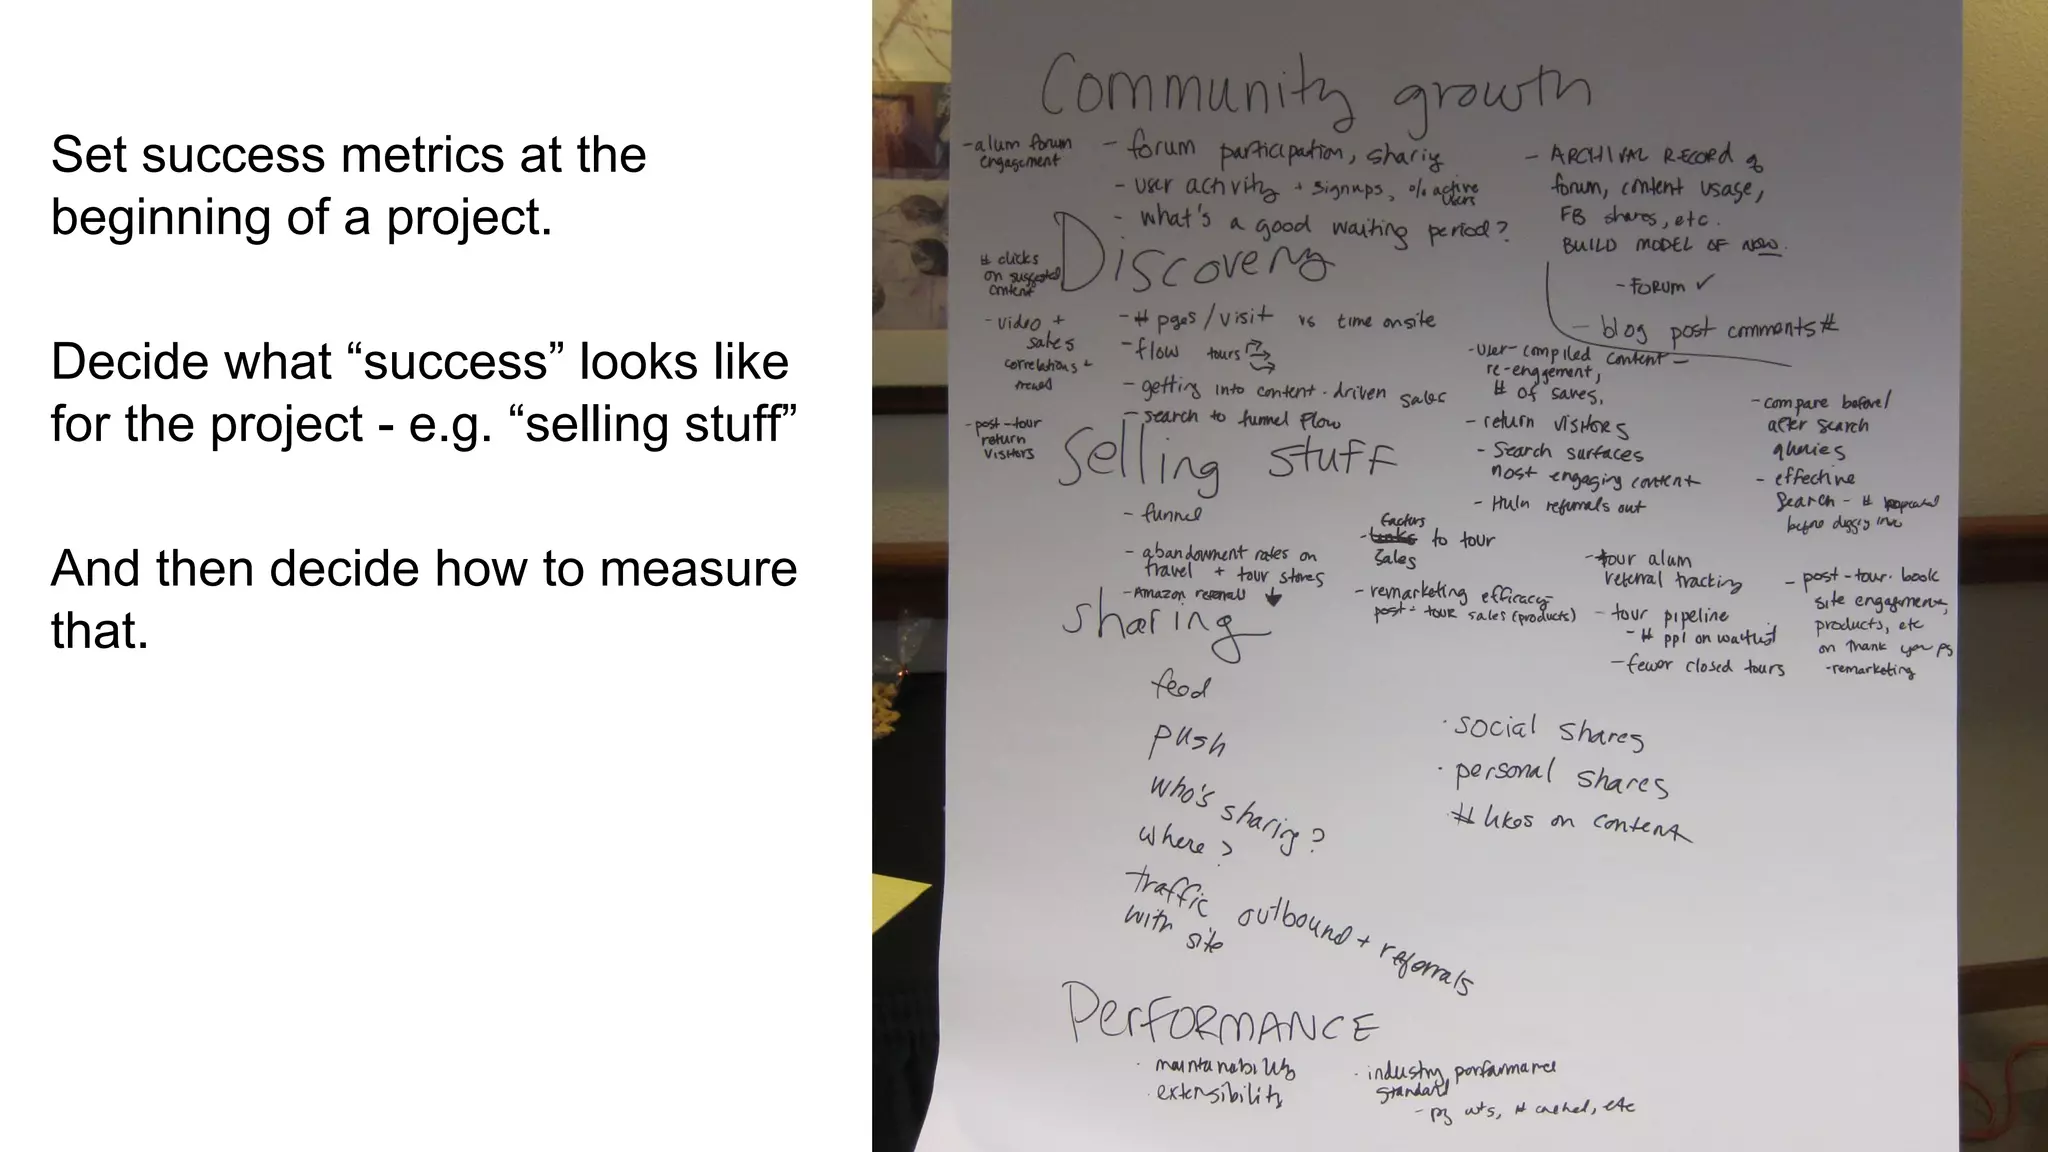 Set success metrics at the
beginning of a project.
Decide what “success” looks like
for the project - e.g. “selling stuff”
And then decide how to measure
that.
Community growth
- alum forum
engagement
- forum participation, sharing
- user activity + signups, % active
users
- what's a good waiting period?
- ARCHIVAL RECORD of
forum, content usage,
FB shares, etc.
BUILD MODEL OF NOW.
- FORUM ✓
- blog post comments #
Discovery
# clicks
on suggested
content
- video +
sales
correlations +
- post-tour
return
visitors
- # pges/visit vs time onsite
- flow tours
- getting into content-driven sales
- search to funnel flow
- user-compiled content -
re-enggement,
# of saves.
- return visitors
- Search surfaces
most engaging content
- Hulu referrals out
- compare before/
after search
queries
- effective
Search - #
before digging in
Selling stuff
- funnel
- abandownment rates on
travel + tour stores
- Amazon referrals
- factors to tour
sales
- remarketing efficacy -
post-tour sales (products)
- tour alum
referral tracking
- tour pipeline
- # ppl on waitlist
- fewer closed tours
- post-tour-book
site engagement,
products, etc
on Thank you pg
- remarketing
sharing
feed
push
who's sharing?
where?
traffic outbound + referrals
with site
· social shares
· personal shares
· # likes on content
PERFORMANCE
· maintanability
· extensibility
· industry performance
standard
- pg wts, # cached, etc